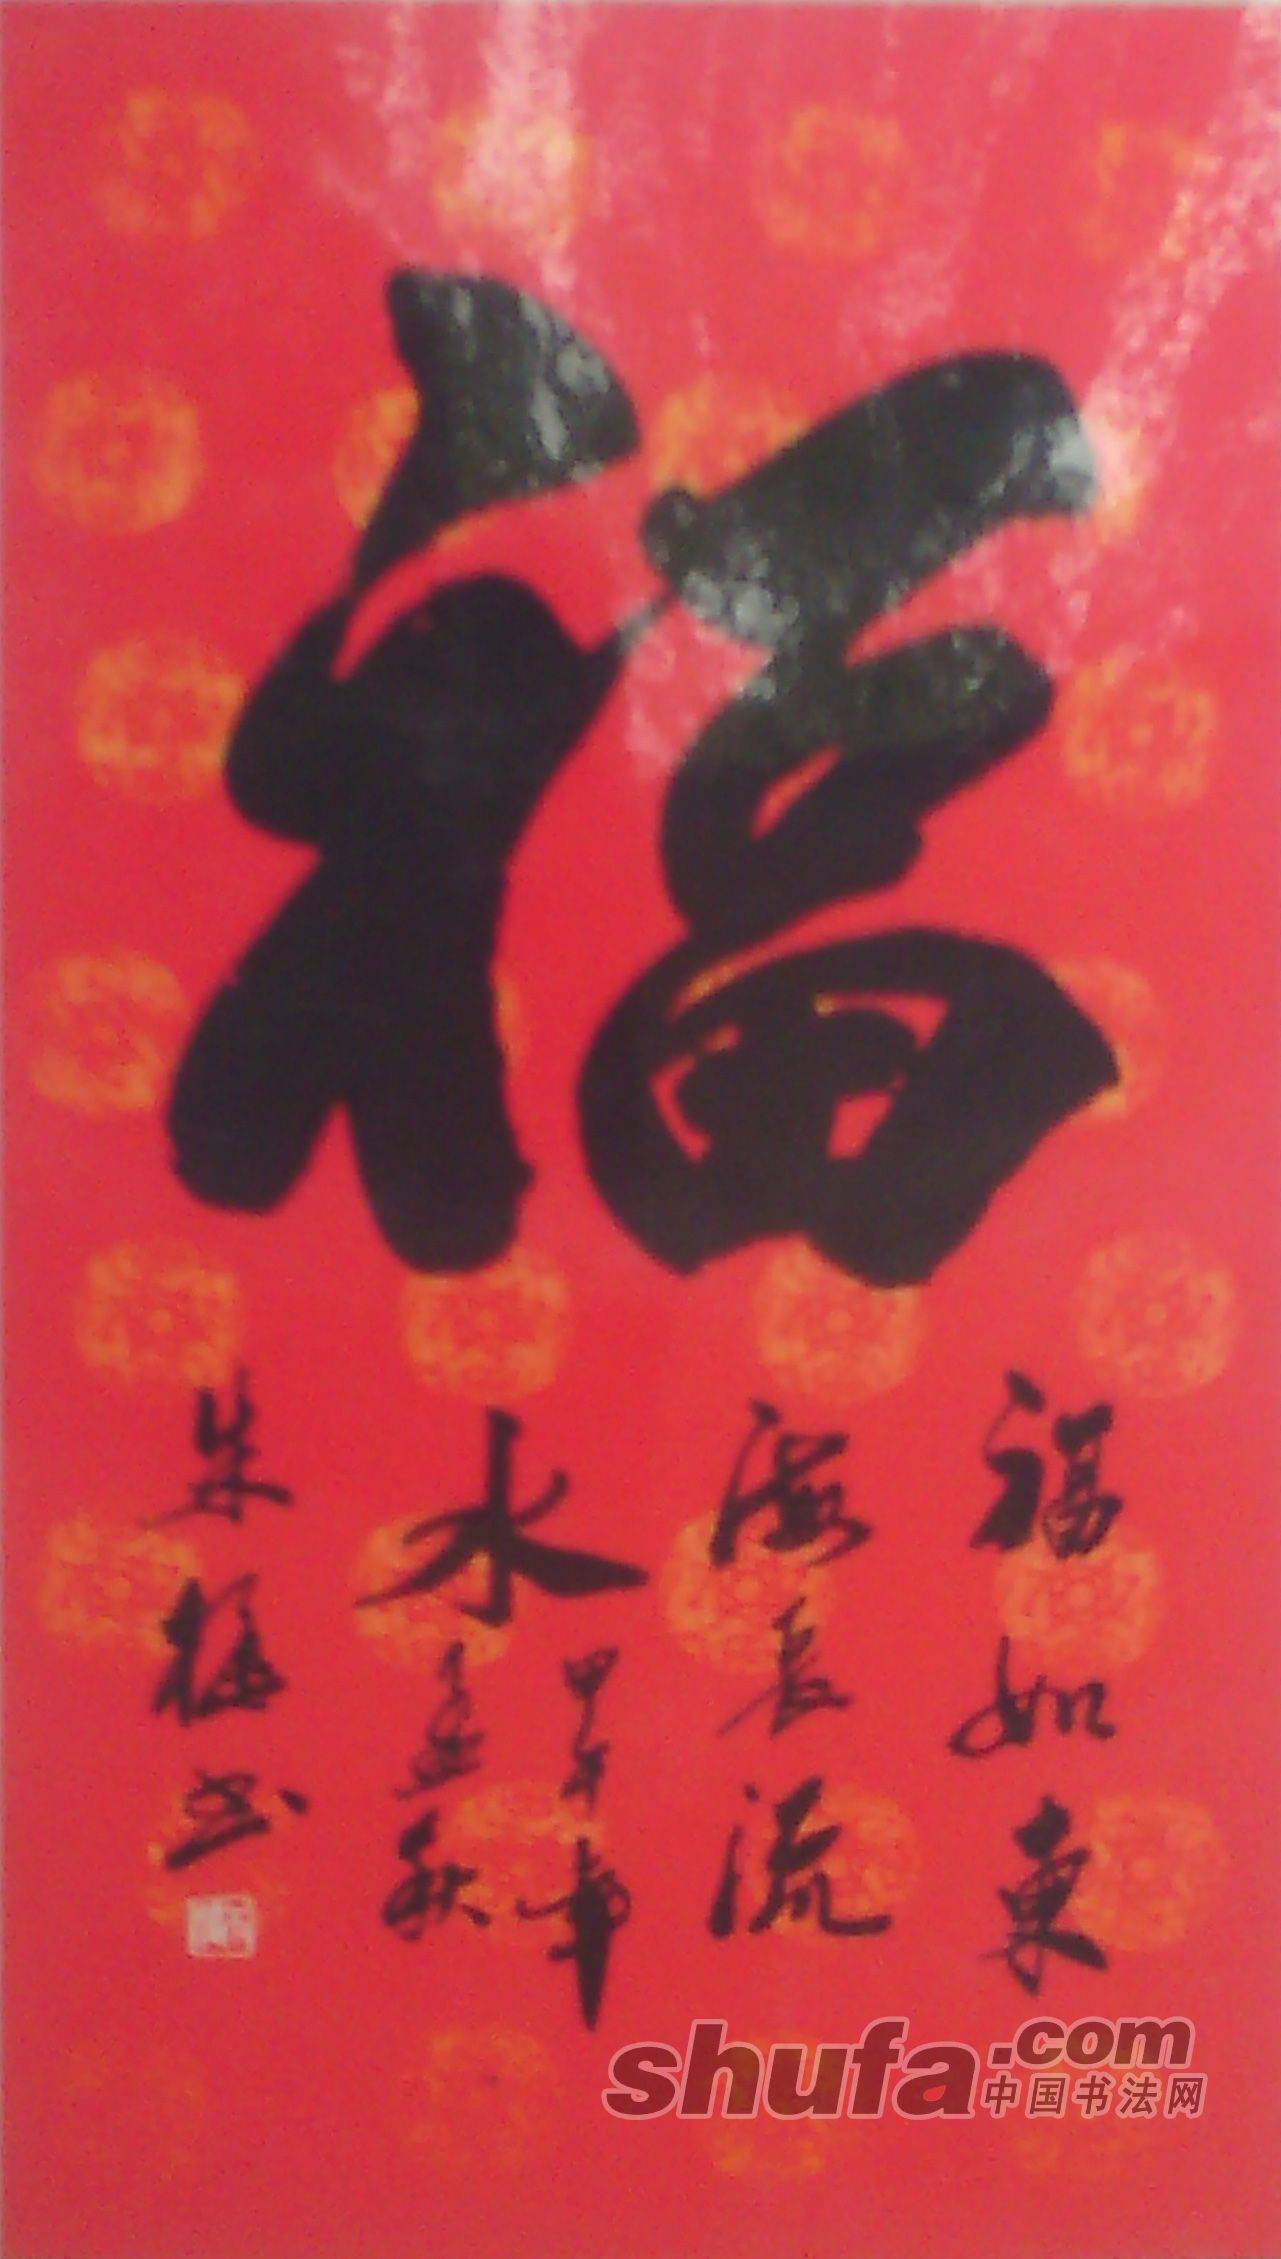 福
福如東
海長流
水
甲午年
孟秋
朱
书
shufa.com
中国书法网